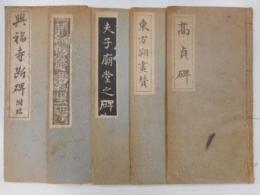 高貞碑
東方朔畫賛
夫子廟堂之碑
興福寺断碑